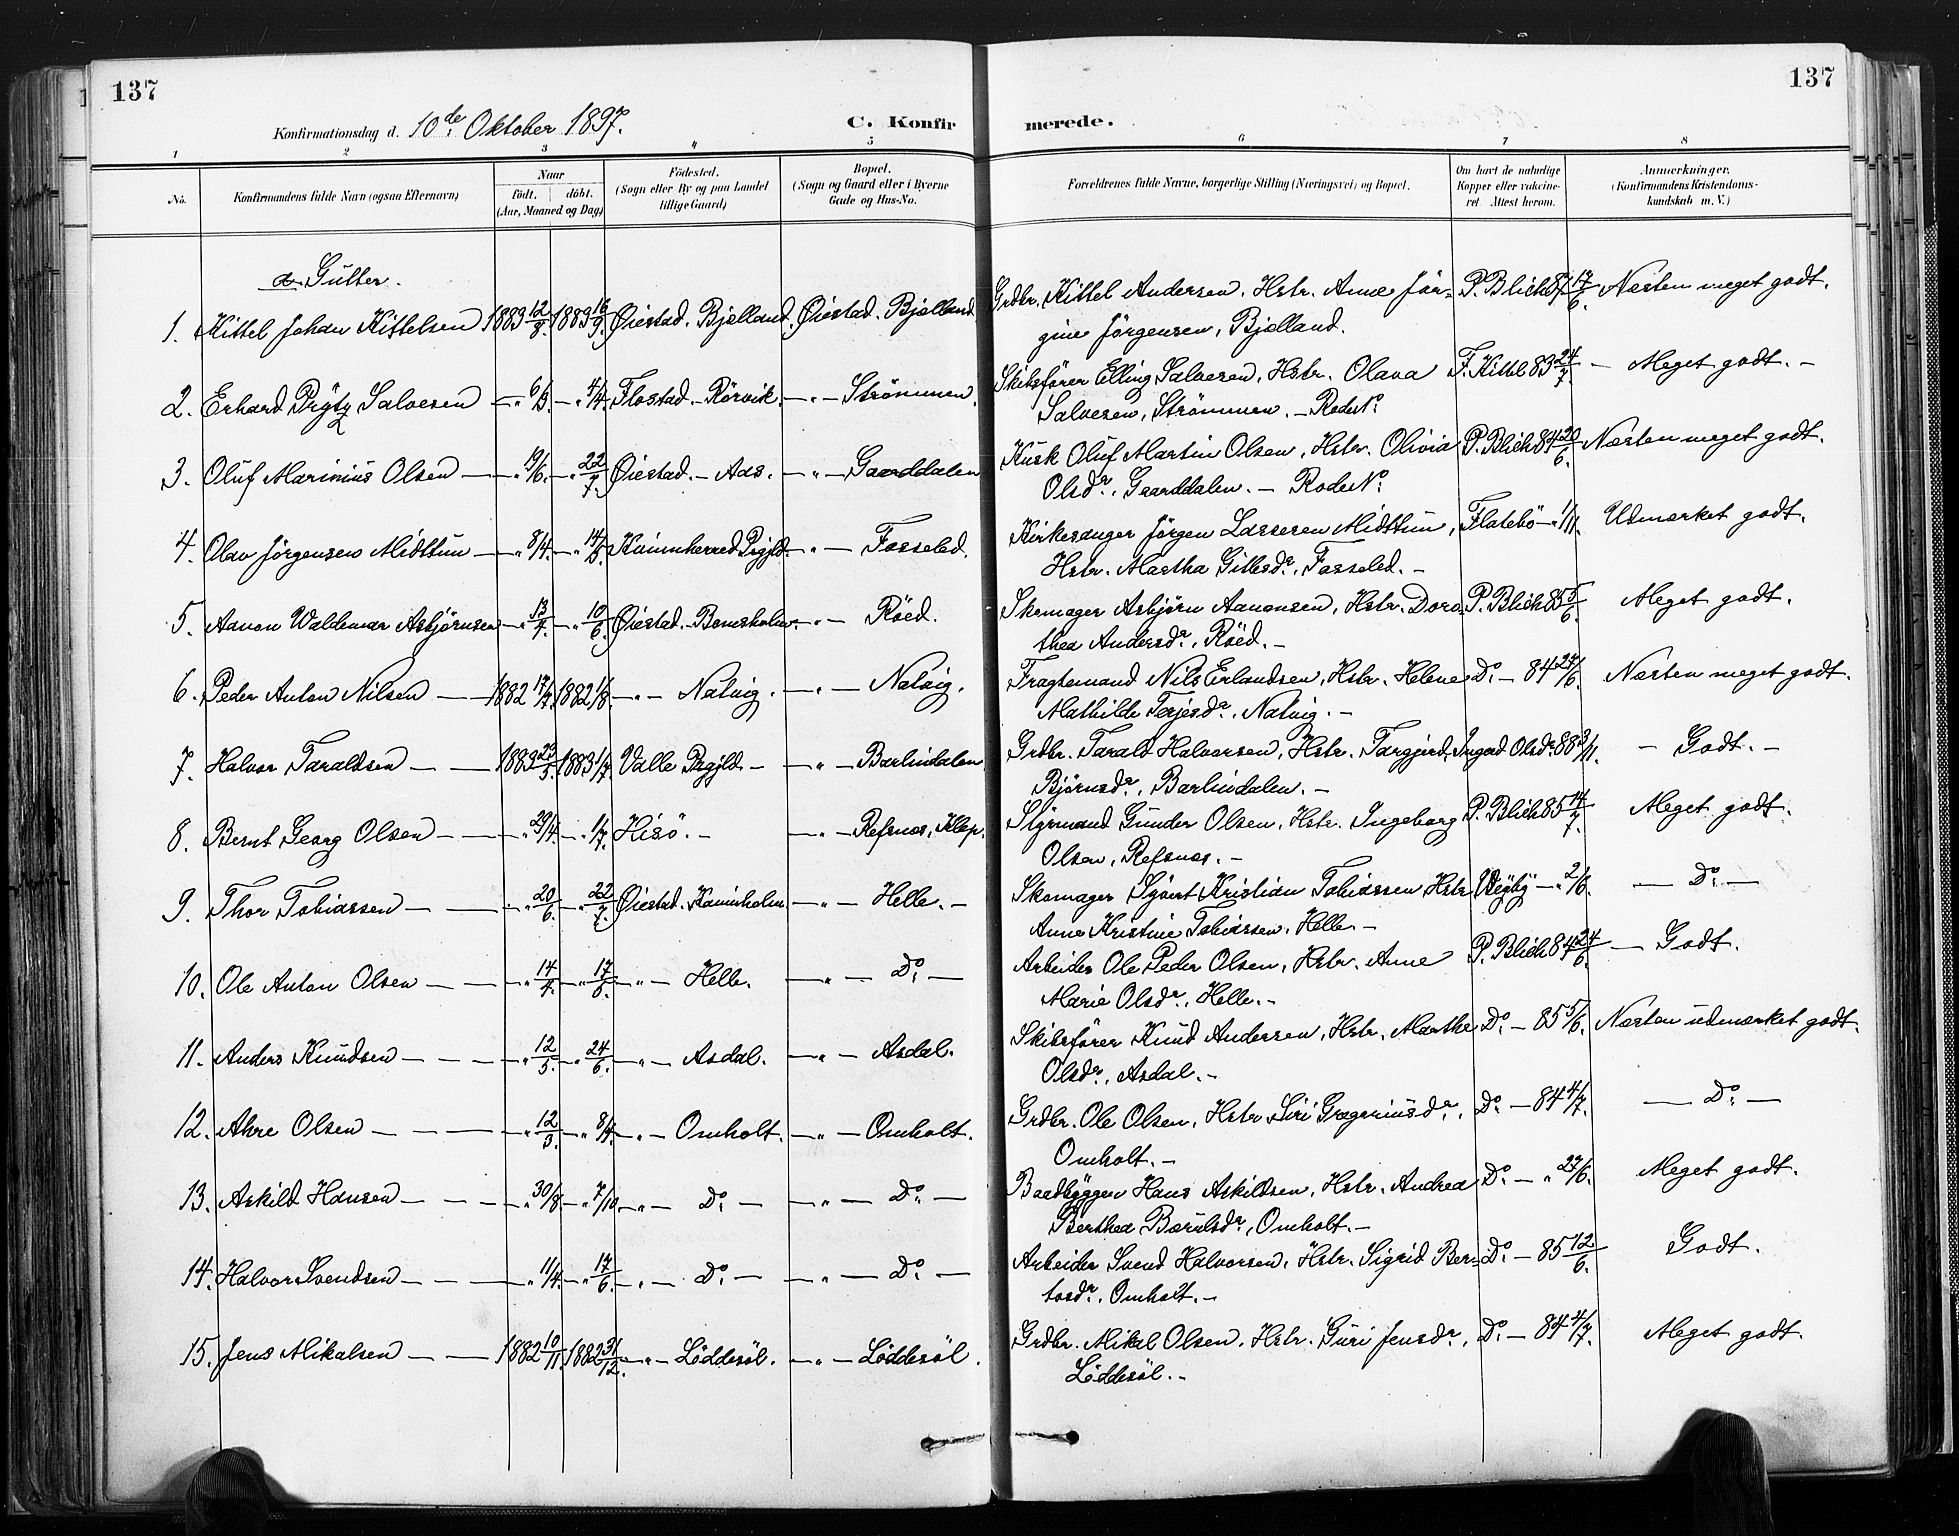 137
137
Konfirmationsdag d. 10de Oktober 1897.
C. Konfirmerede.
1 2 3 4 5 6 7 8
No.
Konfirmandens fulde Navn (ogsaa Efternavn)
Naar
födt. döbt.
(Aar, Maaned og Dag)
Födested.
(Sogn eller By og paa Landet tillige Gaard)
Bopæl.
(Sogn og Gaard eller i Byerne Gade og Hus-No.
Forældrenes fulde Navne, borgerlige Stilling (Næringsvei) og Bopæl.
Om havt de naturlige Kopper eller vakcineret. Attest herom.
Anmærkninger.
(Konfirmandens Kristendomskundskab m. V.)
a. Gutter.
1. Kittel Johan Kittelsen 1883 12/8. 1883 16/9. Øiestad. Bjelland. Øiestad. Bjelland Grdbr. Kittel Andersen. Hstr. Anne Jör- P. Blich 87 17/6. Næsten meget godt.
gine Jörgensen, Bjelland.
2. Erhard Prytz Salvesen — " 6/3. — " 4/4. Flostad. Rörvik. — " — Strömmen. Skibsförer Elling Salvesen, Hstr. Olava F. Kittel 83 24/7. — Meget godt. —
Salvesen, Strömmen. — Rode No
3. Oluf Marinius Olsen — " 19/6. — " 22/7. Øiestad. — Aas. — " — Gaarddalen Kusk Oluf Martin Olsen, Hstr. Olivia P. Blich 84 20/6. Næsten meget godt.
Olsdr., Gaarddalen. — Rode No
4. Olav Jörgensen Midttun — " 8/4. — " 14/5. Kvinnherred Prgjld. — " — Fosseled. Kirkesanger Jörgen Larssen Midttun, Flatebö — " 1/11. Udmærket godt.
Hstr. Martha Gitlesdr., Fosseled. —
5. Aanon Waldemar Asbjörnsen — " 13/4. — " 10/6. Øiestad. Bomsholm. — " — Röed. Skomager Asbjörn Aanonsen, Hstr. Doro- P. Blich 85 5/6. Meget godt.
thea Andersdr., Röed. —
6. Peder Anton Nilsen — 1882 17/7. 1882 1/8. — " — Natvig. — " — Natvig. Fragtemand Nils Erlandsen, Hstr. Helene Do. — 84 27/6. Næsten meget godt.
Mathilde Terjesdr., Natvig. —
7. Halvor Taraldsen — 1883 29/5. 1883 1/7. Valle Prgjld — — " — Barlindalen. Grdbr. Tarald Halvorsen, Hstr. Targjerd Ingerd Olsdr. 88 3/11. — Godt. —
Björnsdr., Barlindalen. —
8. Bernt Georg Olsen — — " 29/4. — " 1/7. Hisö. — — " — Refsnes, Klep. Styrmand Gunder Olsen, Hstr. Ingeborg P. Blich 85 14/7. Meget godt.
Olsen, Refsnes. —
9. Thor Tobiassen — — " 20/6. — " 22/7. Øiestad. — " — Helle. — Skomager Syvert Kristian Tobiassen Hstr. — " 2/6. — Do. —
Anne Kristine Tobiassen, Helle. —
10. Ole Anton Olsen — — " 14/4. — " 17/6. — " — Helle. — " — Do. — Arbeider Ole Peder Olsen, Hstr. Anne P. Blich 84 24/6. — Godt.
Marie Olsdr., Helle. —
11. Anders Knudsen — — " 12/5. — " 24/6. — " — Asdal. — " — Asdal. Skibsförer Knud Andersen, Hstr. Marthe Do. — 85 5/6. Næsten udmærket godt.
Olsdr., Asdal. —
12. Akre Olsen — — " 12/3. — " 8/4. — " — Omholt. — " — Omholt. Grdbr. Ole Olsen, Hstr. Siri Gregeriusdr., Do. — 84 4/7. — Do. —
Omholt. —
13. Askild Hansen — — " 30/8. — " 7/10. — " — Do. — — " — Do. — Baadbygger Hans Askildsen, Hstr. Andrea Do. — " 27/6. Meget godt.
Berthea Bærulsdr., Omholt. —
14. Halvor Svendsen — — " 11/4. — " 17/6. — " — Do. — — " — Do. — Arbeider Svend Halvorsen, Hstr. Sigrid Ber- Do. — 85 12/6. Godt.
tosdr., Omholt. —
15. Jens Mikalsen — — 1882 10/11. 1882 31/12. — " — Löddesöl. — " — Löddesöl. Grdbr. Mikal Olsen, Hstr. Guri Jensdr., Do. — 84 4/7. Meget godt.
Löddesöl. —